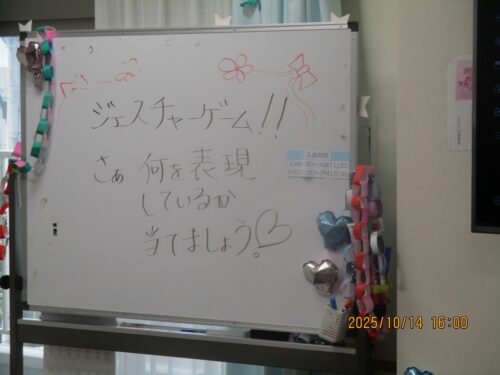 ジェスチャーゲーム!!
さぁ 何を表現
しているか
当てましょう!♡
入浴時間
2025/10/14 16:00